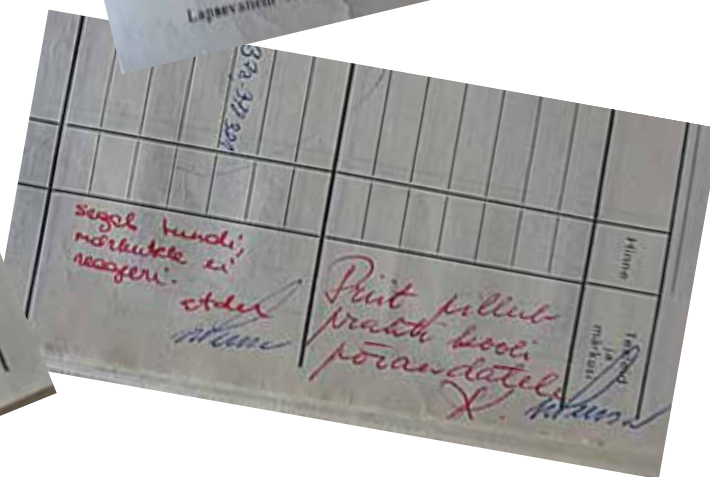 Lapsevanem
372-377 301
Hinne
märkusi
segab tundi,
märkustele ei
reageeri.
Priit pillub
prahti kooli
põrandatele